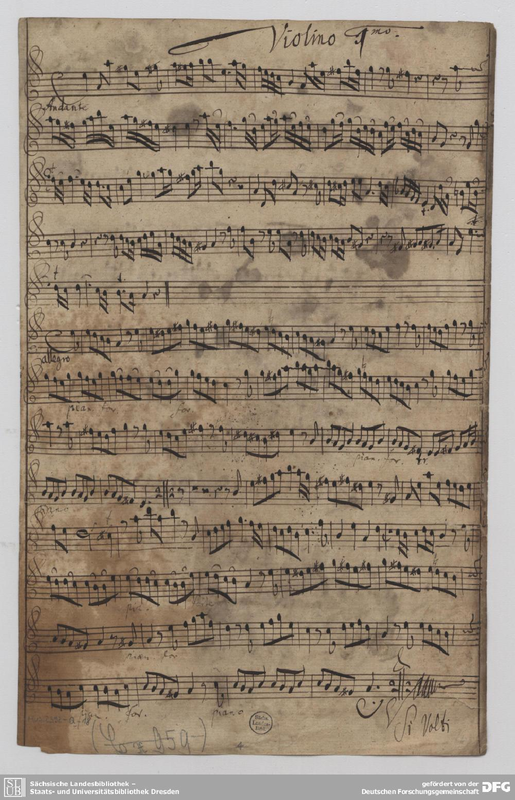 Violino 1mo.
Andante
allegro
pia. for for
pian. for. fr
piano
pian for
for. piano
Si Volti
4.
SLUB Sächsische Landesbibliothek –
Staats- und Universitätsbibliothek Dresden
gefördert von der
Deutschen Forschungsgemeinschaft DFG